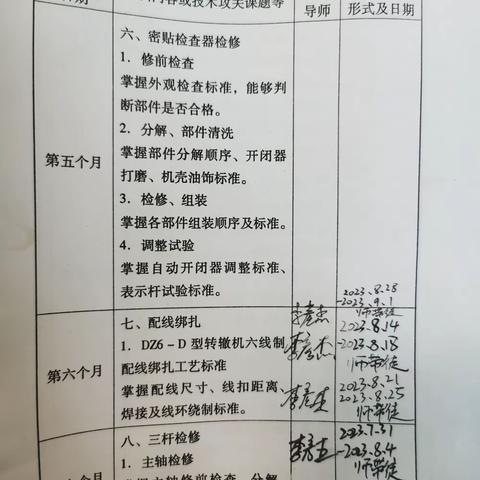 内容或技术攻关课题等
导师
形式及日期
六、密贴检查器检修
1．修前检查
掌握外观检查标准，能够判
断部件是否合格。
2．分解、部件清洗
掌握部件分解顺序、开闭器
打磨、机壳油饰标准。
3．检修、组装
掌握各部件组装顺序及标准。
4．调整试验
掌握自动开闭器调整标准、
表示杆试验标准。
第五个月
2023.8.28
-2023.9.1
师带徒
七、配线绑扎
1．DZ6-D 型转辙机六线制
配线绑扎工艺标准
掌握配线尺寸、线扣距离、
焊接及线环绕制标准。
第六个月
2023.8.14
-2023.8.18
师带徒
2023.8.21
2023.8.25
师带徒
八、三杆检修
1．主轴检修
2023.7.31
-2023.8.4
师带徒
个月